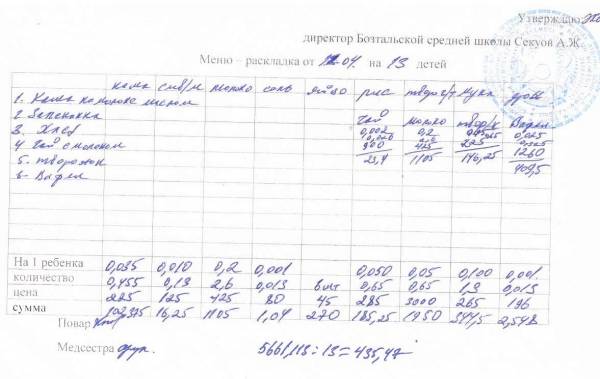 Утверждаю:
директор Бозтальской средней школы Секуов А.Ж.
Меню – раскладка от 12.04. на 13 детей
каша сыв/м молоко соль яйцо рис творог/т мука дрож
1. Каша
2. Запеканка чай молоко твор/к Вафел
3. Хлеб 0,002 0,2 0,025
4. Чай с молоком 900 425 225 1260
5. творожок 23,4 1105 146,25 409,5
6. Вафел
На 1 ребенка 0,035 0,010 0,2 0,001 0,050 0,05 0,100 0,001
количество 0,455 0,13 2,6 0,013 6 шт 0,65 0,65 1,3 0,013
цена 225 125 425 80 45 285 3000 265 196
сумма 102,375 16,25 1105 1,04 270 185,25 1950 344,5 2,548
Повар
Медсестра 5661,113 : 13 = 435,47